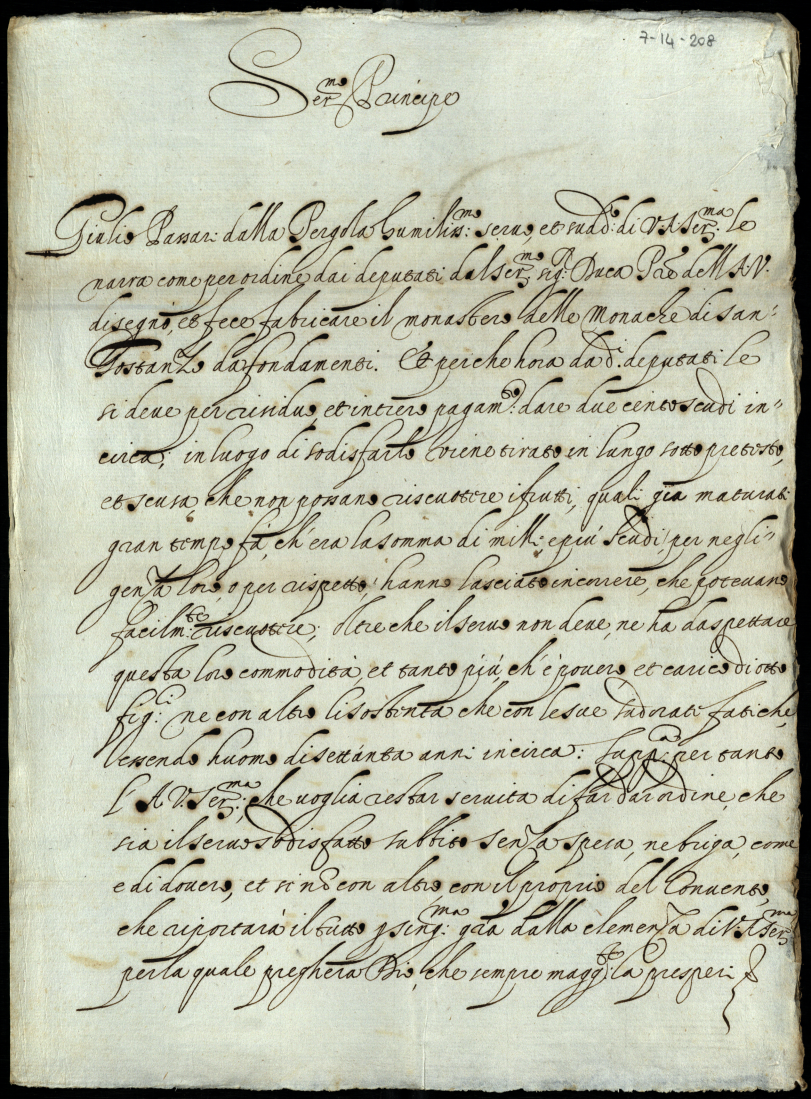 7-14-208
Ser.mo Principe
Giulio Passari dalla Pergola humiliss.mo servo, et sudd.o di V A Ser.ma le
narra come per ordine dai deputati dal Ser.mo Sig.r Duca Pr̃e dell A.V.
disegnò, et fece fabricare il monastero delle Monache di san
Gostanzo da fondamenti. Et perche hora da d.i deputati le
si deve per residuo, et intiero pagam.to dare due cento scudi in=
circa; in luogo di sodisfarlo viene tirato in lungo sotto pretesto,
et scusa, che non possano riscuotere i frutti, quali già maturati
gran tempo fà, ch'era la somma di mille e più scudi, per negli=
genza loro, o per rispetto, hanno lasciato incorrere, che potevano
facilm.te riscuotere; oltre che il servo non deve, ne ha da spettare
questa loro commodità, et tanto più, ch'è povero et carico di otto
fig.li ne con altro li sostenta che con le sue sudorate fatiche,
essendo huomo di settanta anni incirca: Supp.ca per tanto
l'A V Ser.ma, che voglia restar servita di far dar ordine, che
sia il servo sodisfatto subbito senza spesa, ne briga, come
e di dovere, et si nõ con altro con il proprio del Convento,
che riportarà il tutto p sing.ma gr̃a dalla clemenza di V.A Ser.ma
per la quale pregherà Dio, che sempre magg.te la prosperi